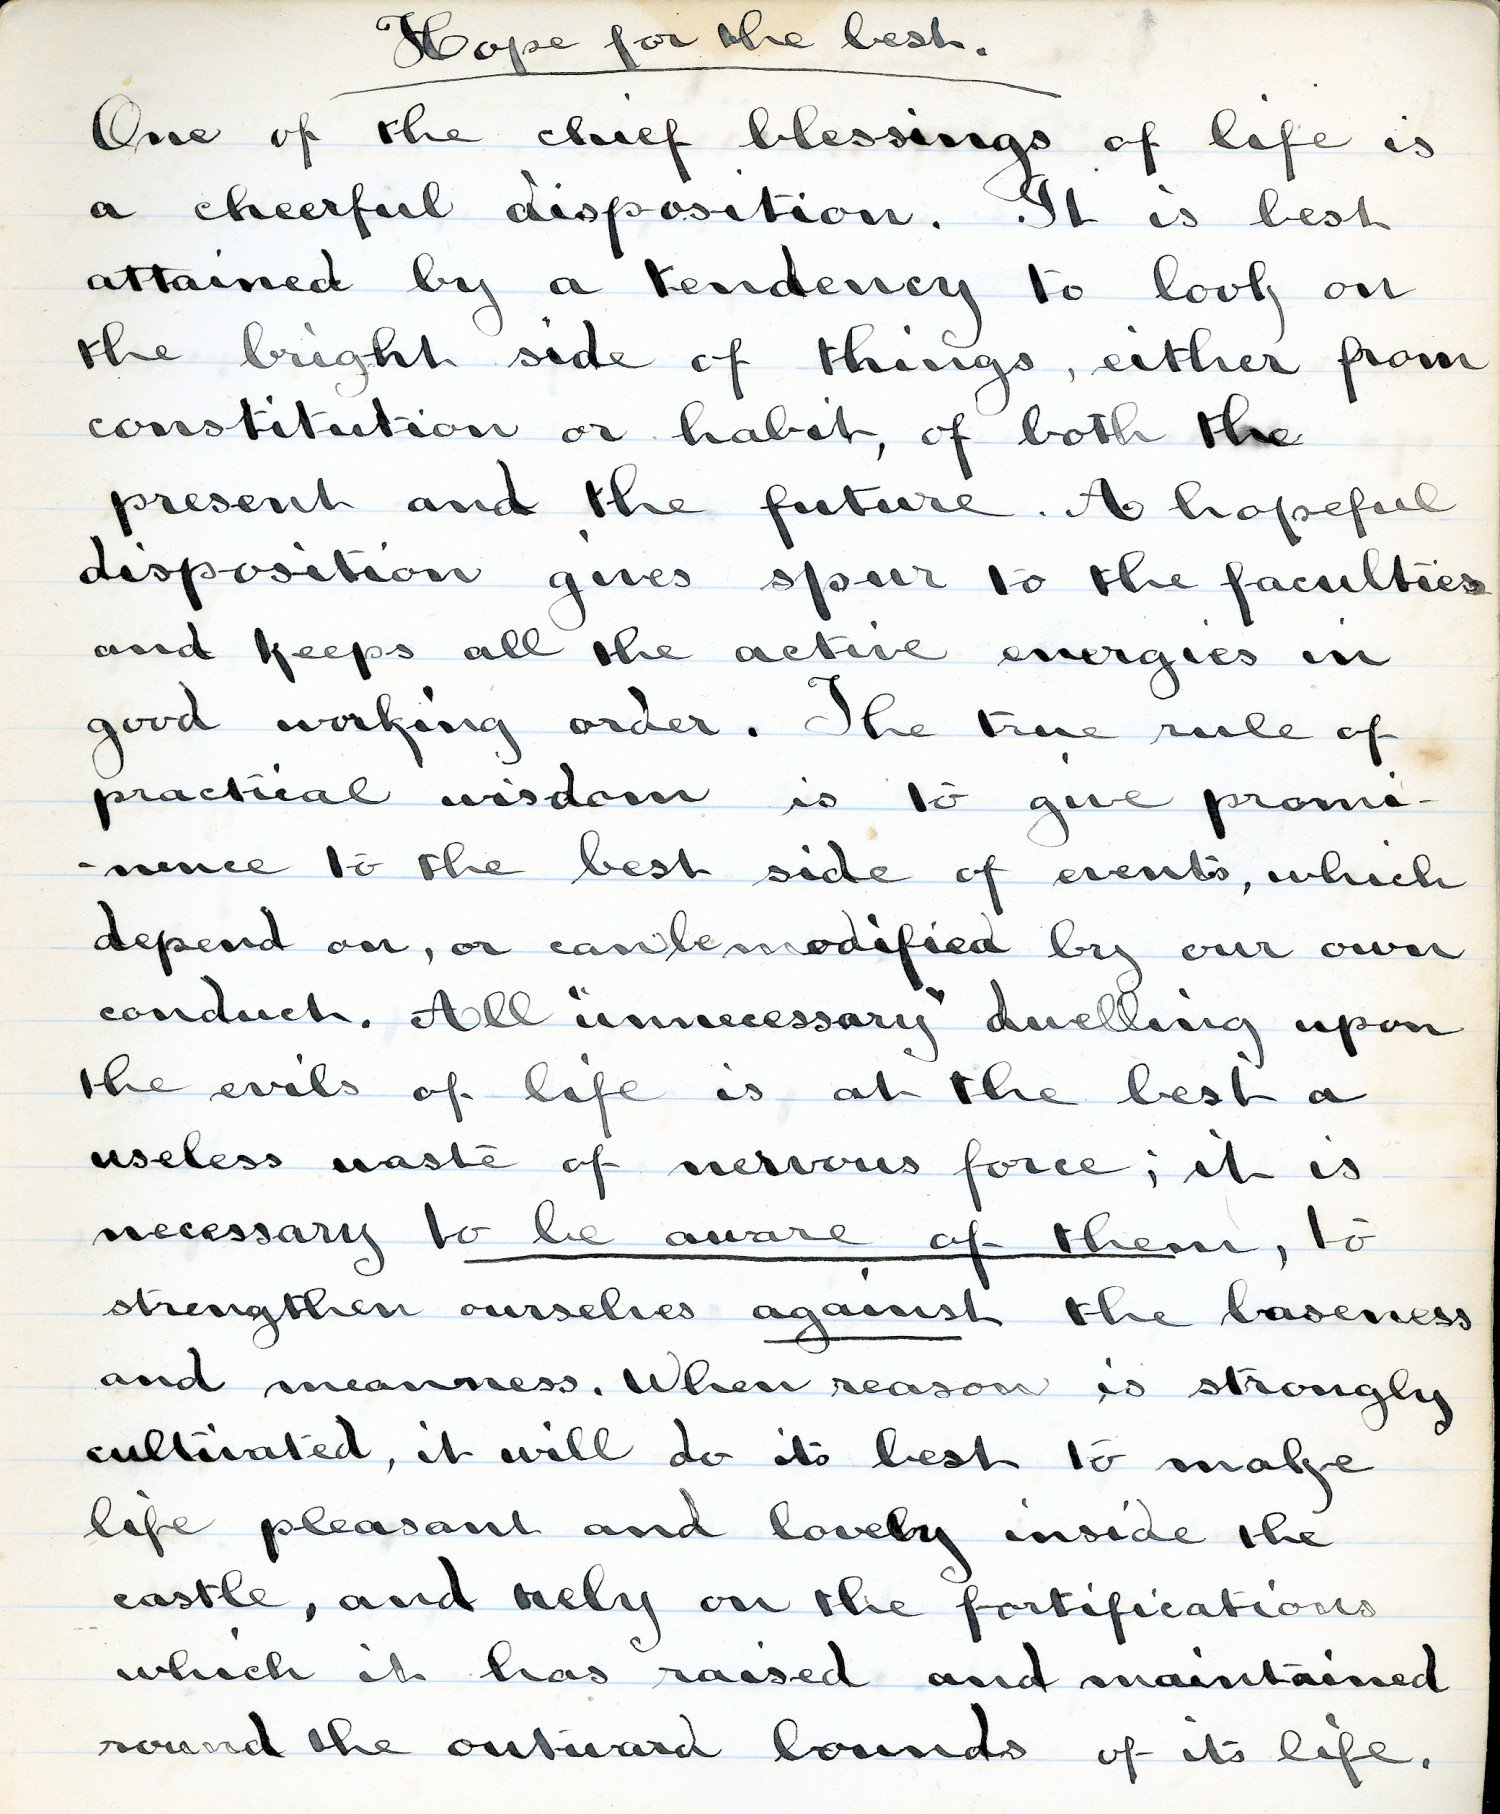 Hope for the best.
One of the chief blessings of life is
a cheerful disposition. It is best
attained by a tendency to look on
the bright side of things, either from
constitution or habit, of both the
present and the future. A hopeful
disposition gives spur to the faculties
and keeps all the active energies in
good working order. The true rule of
practical wisdom is to give promi-
-nence to the best side of events, which
depend on, or can be modified by our own
conduct. All "unnecessary" dwelling upon
the evils of life is at the best a
useless waste of nervous force; it is
necessary to be aware of them, to
strengthen ourselves against the baseness
and meanness. When reason is strongly
cultivated, it will do its best to make
life pleasant and lovely inside the
castle, and rely on the fortifications
which it has raised and maintained
round the outward bounds of its life.